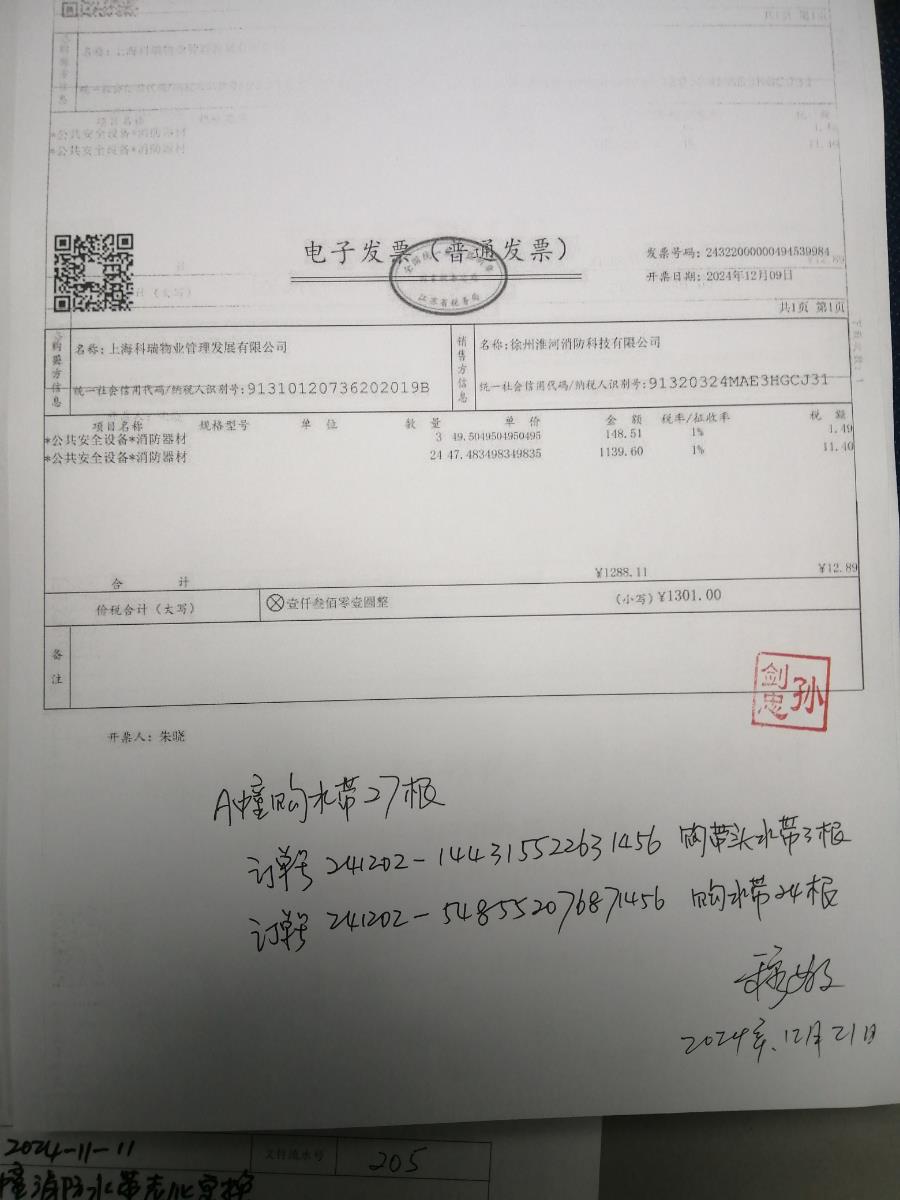 名称:上海科瑞物业管理发展有限公司
项目名称
税 额
*公共安全设备*消防器材
*公共安全设备*消防器材
11.40
电子发票（普通发票）
江苏省税务局
发票号码: 24322000000494539984
开票日期: 2024年12月09日
共1页 第1页
购买方信息
名称:上海科瑞物业管理发展有限公司
统一社会信用代码/纳税人识别号:91310120736202019B
销售方信息
名称:徐州淮河消防科技有限公司
统一社会信用代码/纳税人识别号:91320324MAE3HGCJ31
项目名称 规格型号 单 位 数 量 单 价 金 额 税率/征收率 税 额
*公共安全设备*消防器材 3 49.5049504950495 148.51 1% 1.49
*公共安全设备*消防器材 24 47.483498349835 1139.60 1% 11.40
合 计 ¥1288.11 ¥12.89
价税合计（大写） ⊗壹仟叁佰零壹圆整 （小写）¥1301.00
备注
孙剑忠
开票人: 朱晓
A幢购水带27根
订单号 241202-144315522631456 购带头水带3根
订单号 241202-548552076871456 购水带24根
2024年.12月21日
2024-11-11 文件流水号 205
幢消防水带老化更换